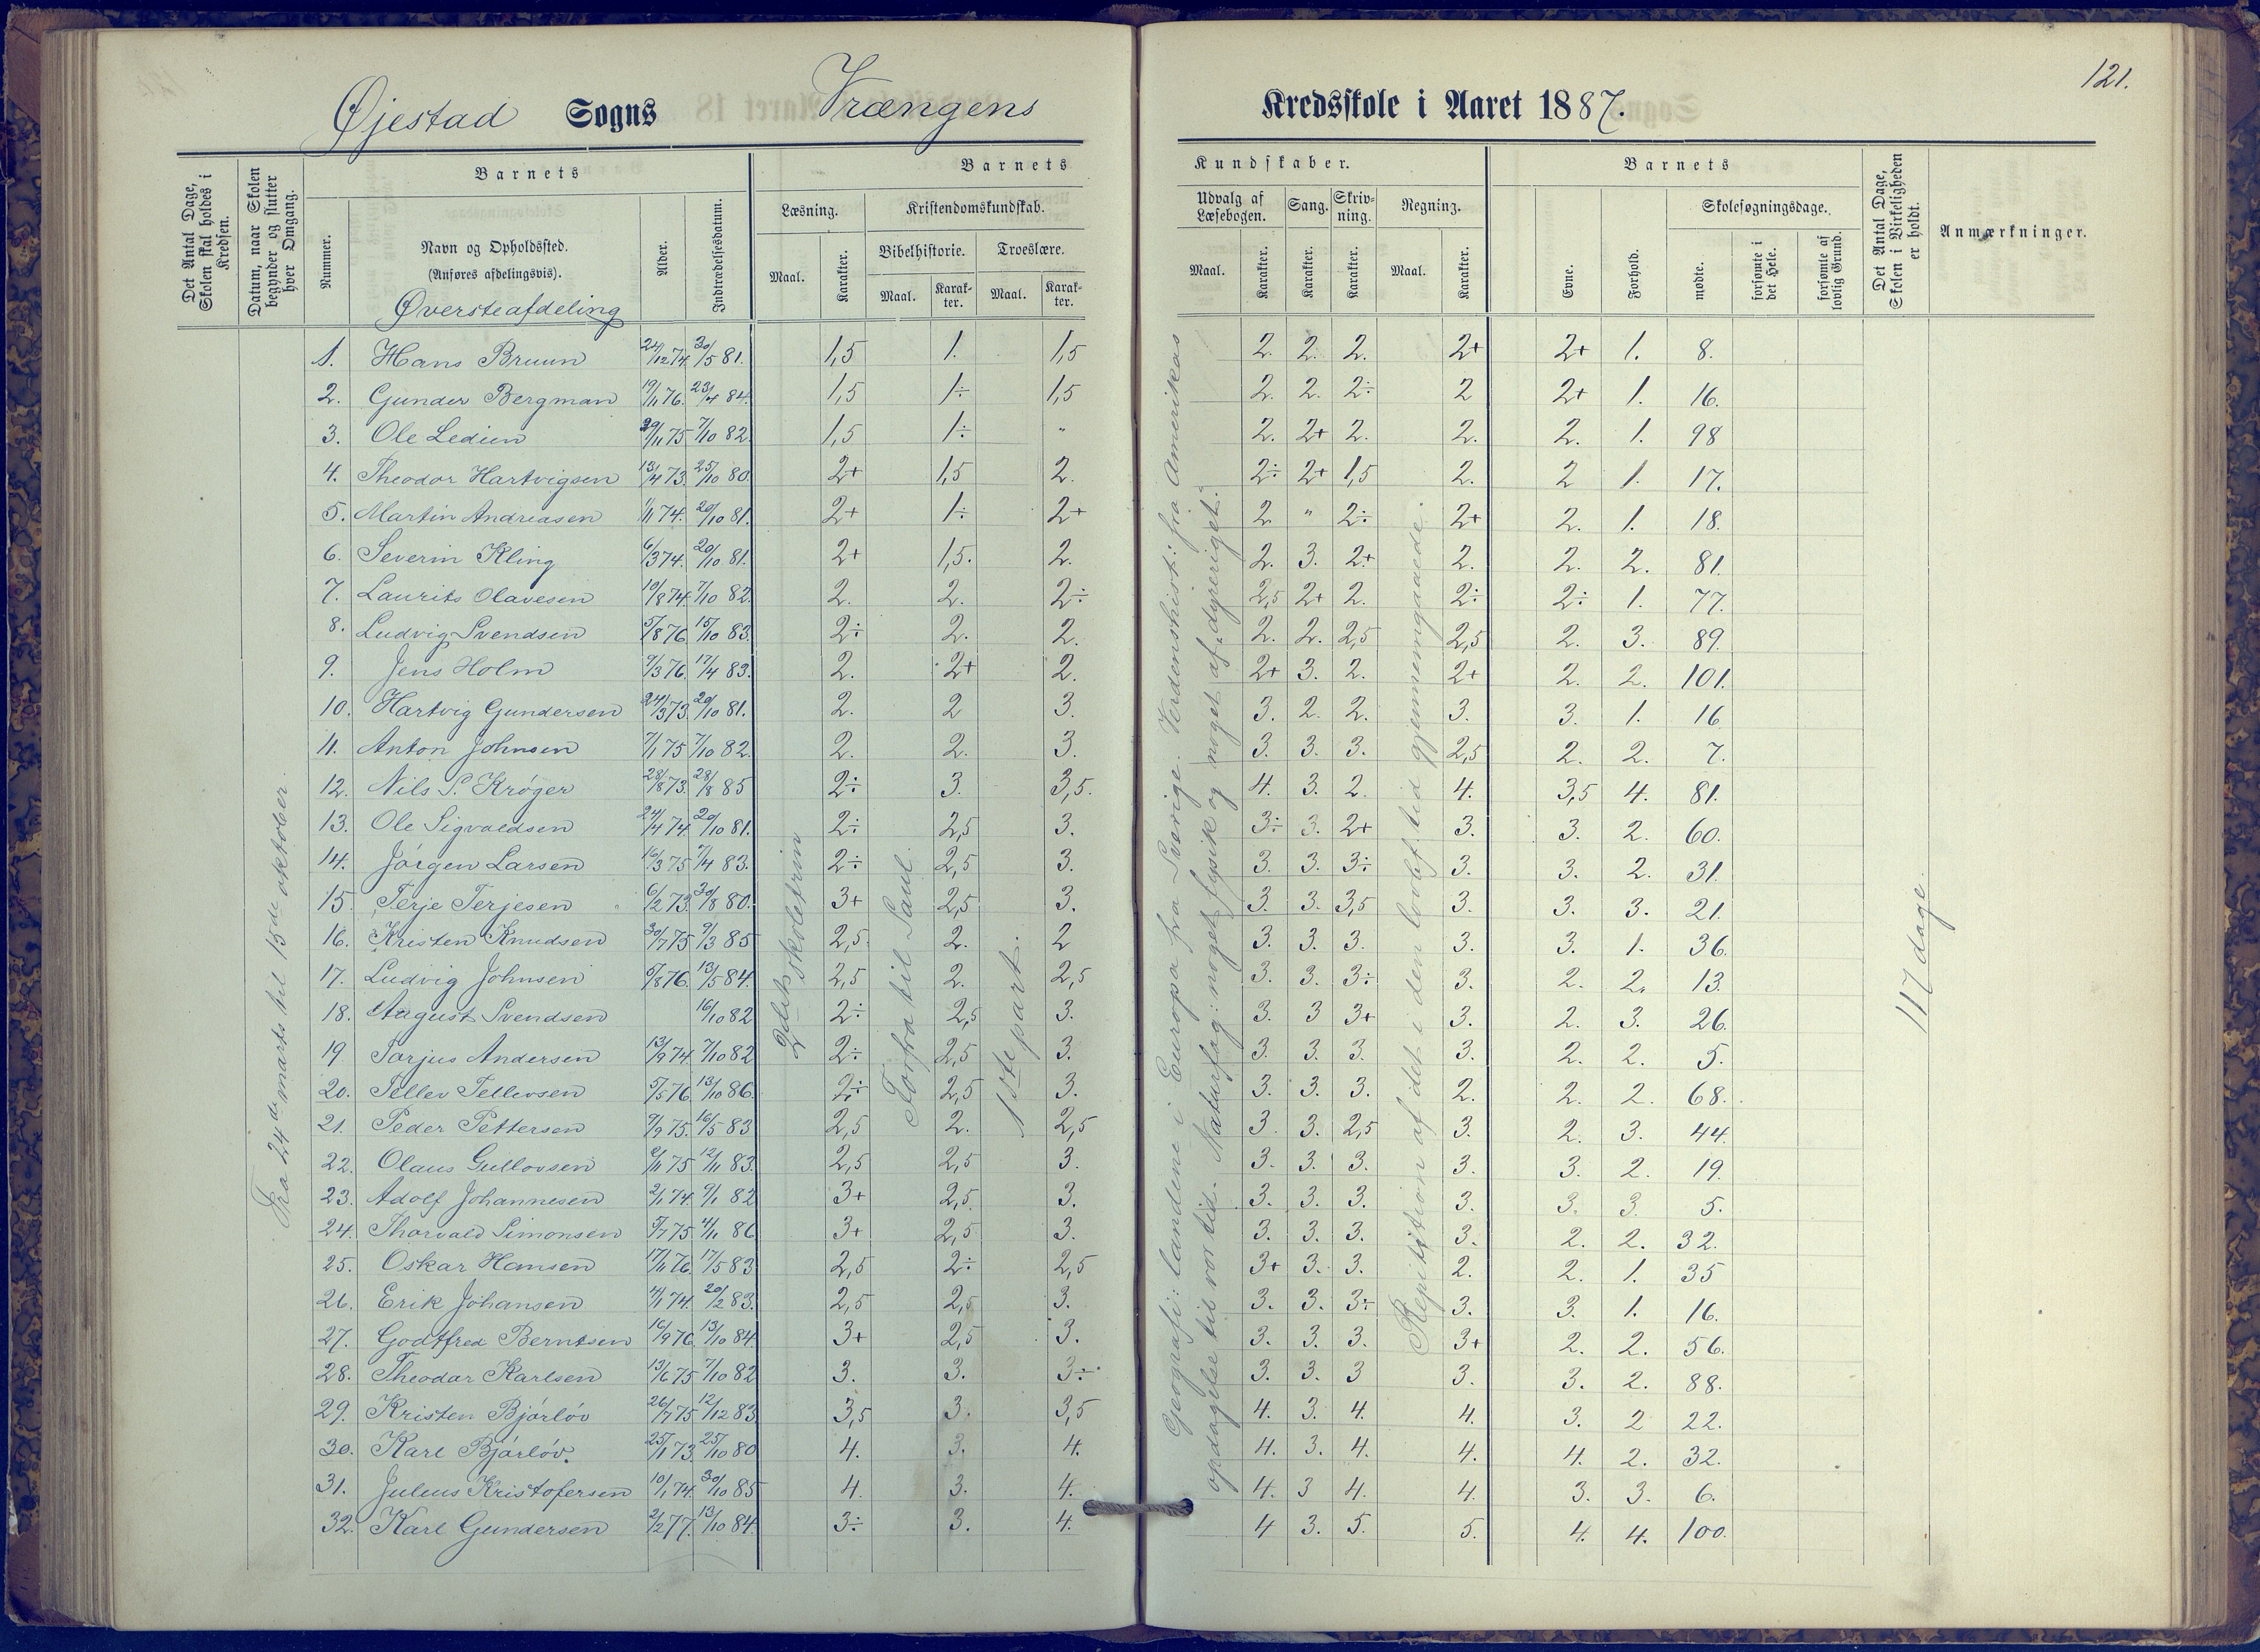 121.
Øjestad Sogns Vrængens Kredsskole i Aaret 1887.
Det Antal Dage, Skolen skal holdes i Kredsen.
Datum, naar Skolen begynder og slutter hver Omgang.
Barnets
Nummer.
Navn og Opholdssted.
(Anføres afdelingsvis).
Øversteafdeling
Alder.
Indtrædelsesdatum.
Barnets Kundskaber.
Læsning.
Maal.
Karakter.
Kristendomskundskab.
Bibelhistorie.
Maal.
Karakter.
Troeslære.
Maal.
Karakter.
Udvalg af Læsebogen.
Maal.
Karakter.
Sang.
Karakter.
Skrivning.
Karakter.
Regning.
Maal.
Karakter.
Barnets
Evne.
Forhold.
Skolesøgningsdage.
mødte.
forsømte i det Hele.
forsømte af lovlig Grund.
Det Antal Dage, Skolen i Virkeligheden er holdt.
Anmærkninger.
Fra 24de marts til 15de oktober.
2det skoletrin
Forfra til Saul.
1ste part.
Geografi: landene i Europa fra Sverige. Verdenshist: fra Amerikas
opdagelse til vor tid. Naturfag: noget fysik og noget af "dyreriget".
Repitition af det i den lovbef. tid gjennemgaaede.
117 dage.
1. Hans Bruun 24/12 74. 30/5 81. 1,5 1. 1,5 2. 2. 2. 2+ 2+ 1. 8.
2. Gunder Bergman 19/11 76. 23/4 84. 1,5 1÷ 1,5 2. 2. 2÷ 2 2+ 1. 16.
3. Ole Ledien 29/11 75 7/10 82. 1,5 1÷ " 2. 2+ 2. 2. 2. 1. 98
4. Theodor Hartvigsen 13/4 73. 25/10 80. 2+ 1,5 2. 2÷ 2+ 1,5 2. 2 1. 17.
5. Martin Andreasen 1/11 74. 20/10 81. 2+ 1÷ 2+ 2. " 2÷ 2+ 2. 1. 18.
6. Severin Kling 6/3 74. 20/10 81. 2+ 1,5. 2. 2. 3. 2+ 2. 2. 2. 81.
7. Laurits Olavesen 19/8 74. 7/10 82. 2. 2. 2÷ 2,5 2+ 2. 2÷ 2÷ 1. 77.
8. Ludvig Svendsen 5/8 76 15/10 83. 2÷ 2. 2. 2. 2. 2,5 2,5 2. 3. 89.
9. Jens Holm 9/3 76. 17/4 83. 2. 2+ 2. 2+ 3. 2. 2+ 2. 2. 101.
10. Hartvig Gundersen 24/3 73. 20/10 81. 2. 2 3. 3. 2. 2. 3. 3. 1. 16
11. Anton Johnsen 7/1 75 7/10 82. 2. 2. 3. 3. 3. 3. 2,5 2. 2. 7.
12. Nils S. Krøger 28/8 73. 28/8 85 2÷ 3. 3,5. 4. 3. 2. 4. 3,5 4. 81.
13. Ole Sigvaldsen 24/4 74. 20/10 81. 2÷ 2,5 3. 3÷ 3. 2+ 3. 3. 2. 60.
14. Jørgen Larsen 16/3 75 7/4 83. 2÷ 2,5 3. 3. 3. 3÷ 3. 3. 2. 31.
15. Terje Terjesen 6/2 73. 30/8 80. 3+ 2,5 3. 3. 3. 3,5 3. 3. 3. 21.
16. Kristen Knudsen 30/7 75 9/3 85 2,5 2. 2 3. 3. 3. 3. 3. 1. 36.
17. Ludvig Johnsen 5/8 76. 13/5 84. 2,5 2. 2,5 3. 3. 3÷ 3. 2. 2. 13.
18. August Svendsen 16/10 82 2÷ 2,5 3. 3. 3 3+ 3. 2. 3. 26.
19. Tarjus Andersen 13/9 74. 7/10 82 2÷ 2,5 3. 3. 3. 3. 3. 2. 2. 5.
20. Tellev Tellevsen 5/5 76. 13/10 86. 2÷ 2,5 3. 3. 3. 3. 2. 2. 2. 68.
21. Peder Pettersen 9/9 75. 16/5 83 2,5 2. 2,5 3. 3. 2,5 3. 2. 3. 44.
22. Olaus Gullovsen 2/11 75 12/11 83. 2,5 2,5 3. 3. 3. 3. 3. 3. 2. 19.
23. Adolf Johannesen 2/1 74. 9/1 82 3+ 2,5 3. 3. 3. 3. 3. 3. 3. 5.
24. Thorvald Simonsen 5/7 75 4/11 86 3+ 2,5 3. 3. 3. 3. 3. 2. 2. 32.
25. Oskar Hansen 17/11 76. 17/5 83 2,5 2÷ 2,5 3+ 3. 3. 2. 2. 1. 35
26. Erik Johansen 4/1 74. 20/2 83. 2,5 2,5 3. 3. 3. 3÷ 3. 3. 1. 16.
27. Godtfred Berntsen 16/9 76. 13/10 84. 3+ 2,5 3. 3. 3. 3. 3+ 2. 2. 56.
28. Theodar Karlsen 13/6 75 7/10 82 3. 3. 3÷ 3. 3. 3 3. 3. 2. 88.
29. Kristen Bjørløv 26/7 75 12/12 83. 3,5 3. 3,5 4. 3. 4. 4. 3. 2 22.
30. Karl Bjørløv. 25/1 73. 25/10 80 4. 3. 4. 4. 3. 4. 4. 4. 2. 32.
31. Julius Kristofersen 10/1 74. 30/10 85 4. 3. 4. 4. 3 4. 4. 3. 3. 6.
32. Karl Gundersen 2/2 77. 13/10 84. 3÷ 3. 4. 4 3. 5. 5. 4. 4. 100.